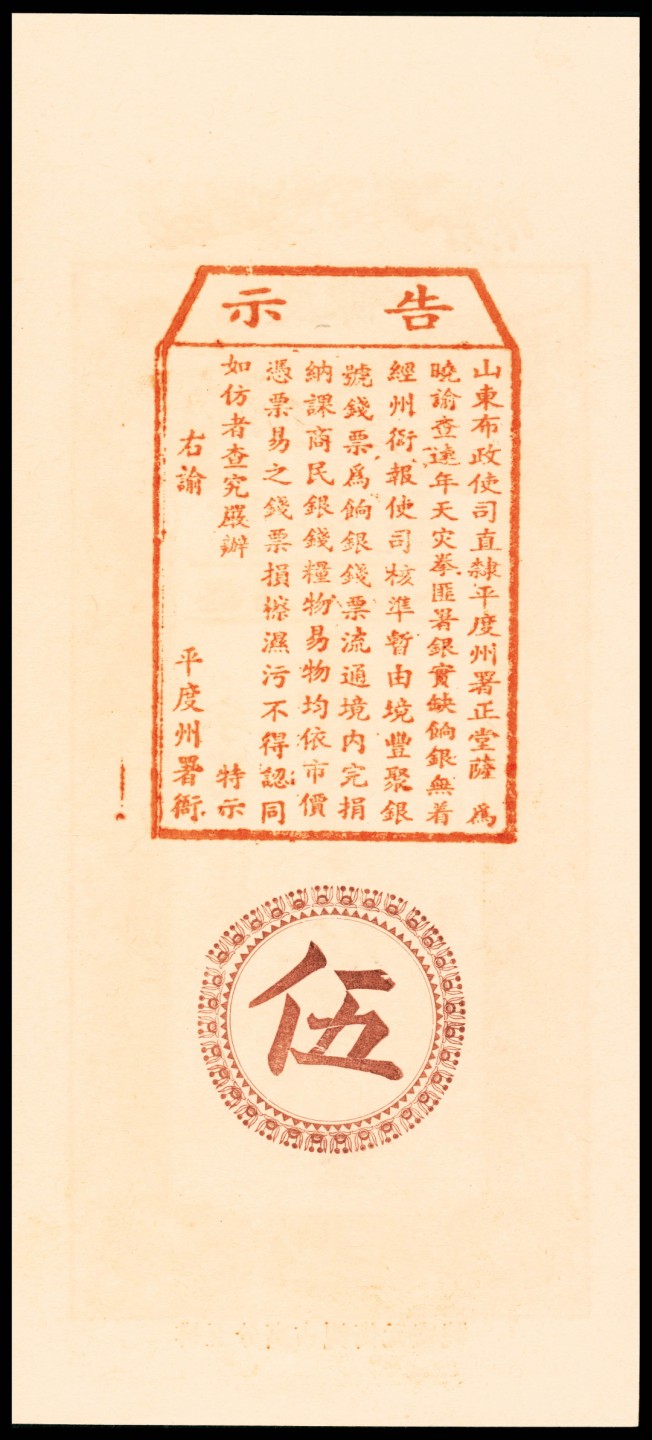 告示
山東布政使司直隸平度州署正堂薩 爲
曉諭查連年天灾拳匪署銀實缺餉銀無着
經州衙報使司核準暫由境豐聚銀
號錢票爲餉銀錢票流通境内完捐
納課商民銀錢糧物易物均依市價
憑票易之錢票損檫濕污不得認同
如仿者查究嚴辦 特示
右諭 平度州署衙
伍